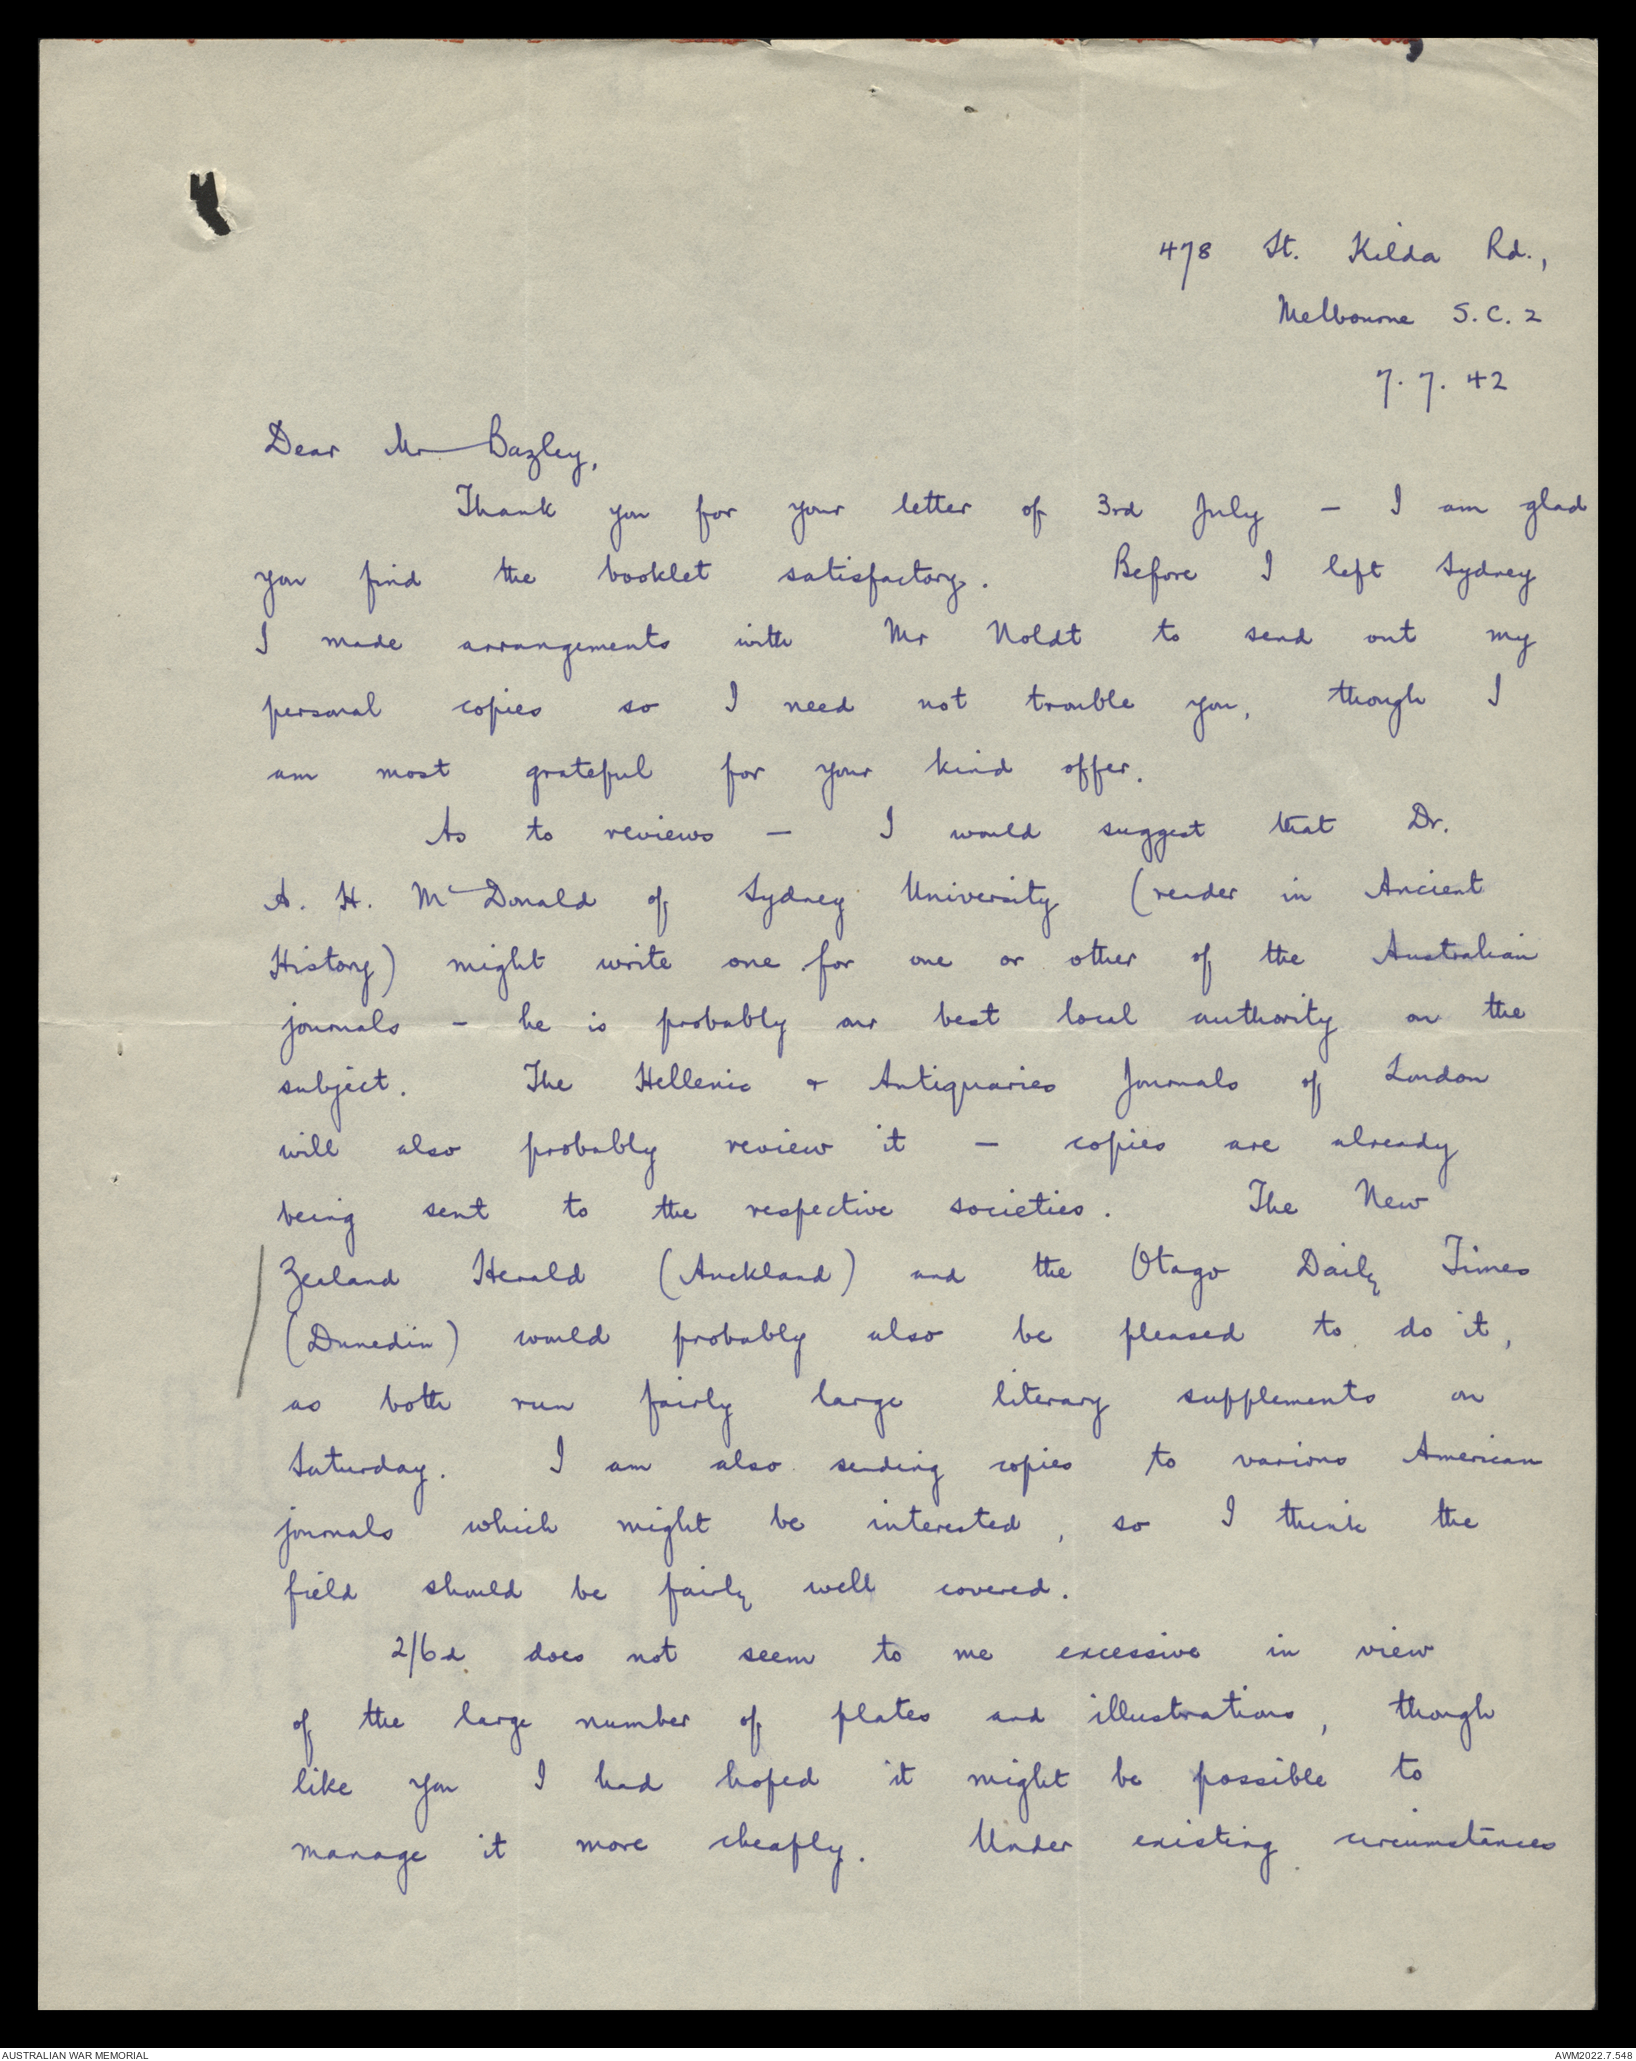 478 St. Kilda Rd.,
Melbourne S.C.2
7.7.42
Dear Mr Bazley,
Thank you for your letter of 3rd July — I am glad
you find the booklet satisfactory. Before I left Sydney
I made arrangements with Mr Noldt to send out my
personal copies so I need not trouble you, though I
am most grateful for your kind offer.
As to reviews — I would suggest that Dr.
A. H. McDonald of Sydney University (reader in Ancient
History) might write one for one or other of the Australian
journals - he is probably our best local authority on the
subject. The Hellenic & Antiquaries Journals of London
will also probably review it — copies are already
being sent to the respective societies. The New
Zealand Herald (Auckland) and the Otago Daily Times
(Dunedin) would probably also be pleased to do it,
as both run fairly large literary supplements on
Saturday. I am also sending copies to various American
journals which might be interested, so I think the
field should be fairly well covered.
2/6d does not seem to me excessive in view
of the large number of plates and illustrations, though
like you I had hoped it might be possible to
manage it more cheaply. Under existing circumstances
AUSTRALIAN WAR MEMORIAL
AWM2022.7.548